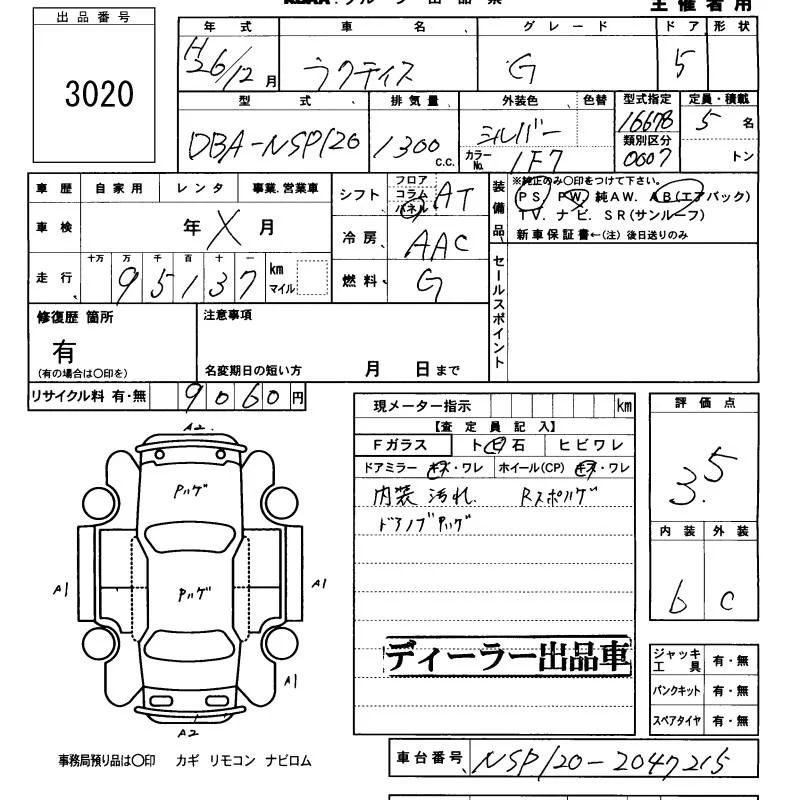 主催者用
出品番号
3020
年式 車名 グレード ドア 形状
H26/12月 ラクティス G 5
型式 排気量 外装色 色替 型式指定 定員・積載
DBA-NSP120 1300 c.c. シルバー 16678 5名
カラーNo. 1F7 類別区分 0007 トン
車歴 自家用 レンタ 事業.営業車
車検 年 X 月
走行 十万 万 千 百 十 一
95137 km マイル
シフト フロア コラム パネル AT
冷房 AAC
燃料 G
装備品 ※純正のみ〇印をつけて下さい。
PS. PW. 純AW. AB(エアバック)
TV. ナビ. SR(サンルーフ)
新車保証書←(注) 後日送りのみ
セールスポイント
修復歴 箇所
有
(有の場合は〇印を)
注意事項
名変期日の短い方 月 日まで
リサイクル料 有・無 9060円
現メーター指示 km
【査定員記入】
Fガラス ト ビ 石 ヒビワレ
ドアミラー キズ・ワレ ホイール(CP) キズ・ワレ
内装 汚れ. Rスポハゲ
ドアノブPハゲ
ディーラー出品車
評価点
3.5
内装 外装
b c
ジャッキ工具 有・無
パンクキット 有・無
スペアタイヤ 有・無
A2
Pハゲ
A1 Pハゲ A1
A1
A2
事務局預り品は〇印 カギ リモコン ナビロム
車台番号 NSP120-2047215